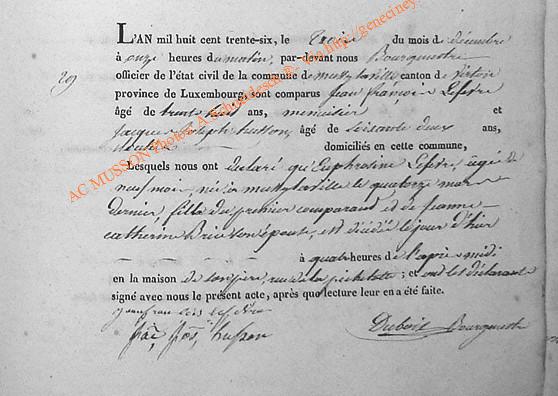 L'AN mil huit cent trente-six, le trois du mois de décembre
à onze heures du matin, par-devant nous Bourguestre
officier de l'état civil de la commune de mussy la ville canton de virton
209 province de Luxembourg, sont comparus jean françois Lefevre
âgé de trente huit ans, menuisier et
jacques joseph husson, âgé de soixante deux ans,
domiciliés en cette commune,
Lesquels nous ont déclaré qu'Euphrosine Lefevre, agée de
neuf mois, née à mussy la ville le quatorze mars
dernier, fille du premier comparant et de jeanne
catherine épouse, est décédée le jour d'hier
à quatre heures de l'après midi
en la maison de son père, rue de la ; et ont les déclarants
signé avec nous le présent acte, après que lecture leur en a été faite.
jean françois lefevre
jac, jos, husson
Dubois Bourguestre
AC MUSSON Photos A. Schoindesesx ©- dia http://geneciney